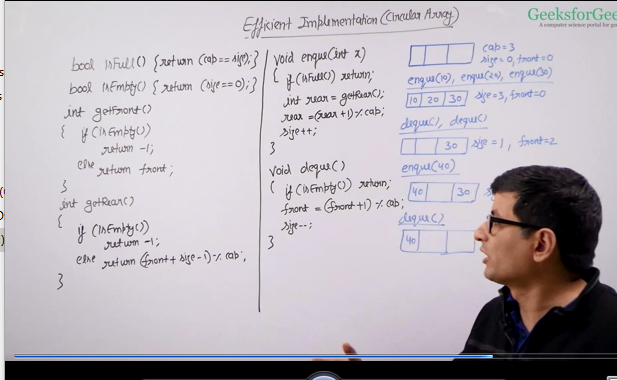 Efficient Implementation (Circular Array)
GeeksforGee
A computer science portal for g
bool isFull() { return (cap == size); }
bool isEmpty() { return (size == 0); }
int getFront()
{ if (isEmpty())
return -1;
else return front;
}
int getRear()
{
if (isEmpty())
return -1;
else return (front + size - 1) % cap;
}
void enque(int x)
{ if (isFull()) return;
int rear = getRear();
rear = (rear + 1) % cap;
size++;
}
void deque()
{ if (isEmpty()) return;
front = (front + 1) % cap;
size--;
}
cap = 3
size = 0, front = 0
enque(10), enque(20), enque(30)
10 20 30 size = 3, front = 0
deque(), deque()
30 size = 1, front = 2
enque(40)
40 30
deque()
40